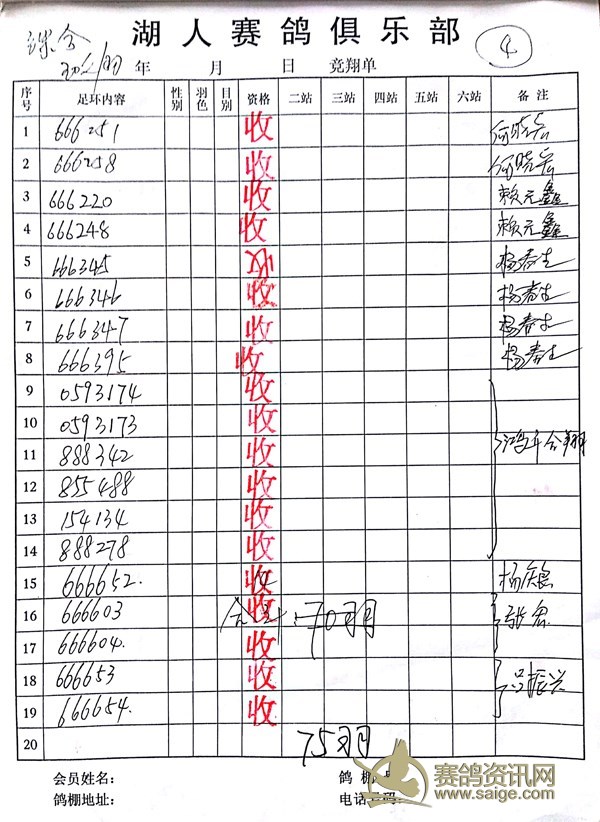 湖人赛鸽俱乐部
4
年 月 日 竞翔单
序号 足环内容 性别 羽色 目别 资格 二站 三站 四站 五站 六站 备注
1 666251 收 何晓岩
2 666258 收 何晓岩
3 666220 收 赖元鑫
4 666248 收 赖元鑫
5 666345 收 杨春生
6 666346 收 杨春生
7 666347 收 杨春生
8 666395 收 杨春生
9 0593174 收
10 0593173 收
11 888342 收
12 855488 收
13 154134 收
14 888278 收
15 666652. 收
16 666603 收
17 666604. 收
18 666653 收 吕振兴
19 666654. 收
20 75羽
会员姓名: 鸽棚
鸽棚地址: 电话号码:
赛鸽资讯网
www.saige.com